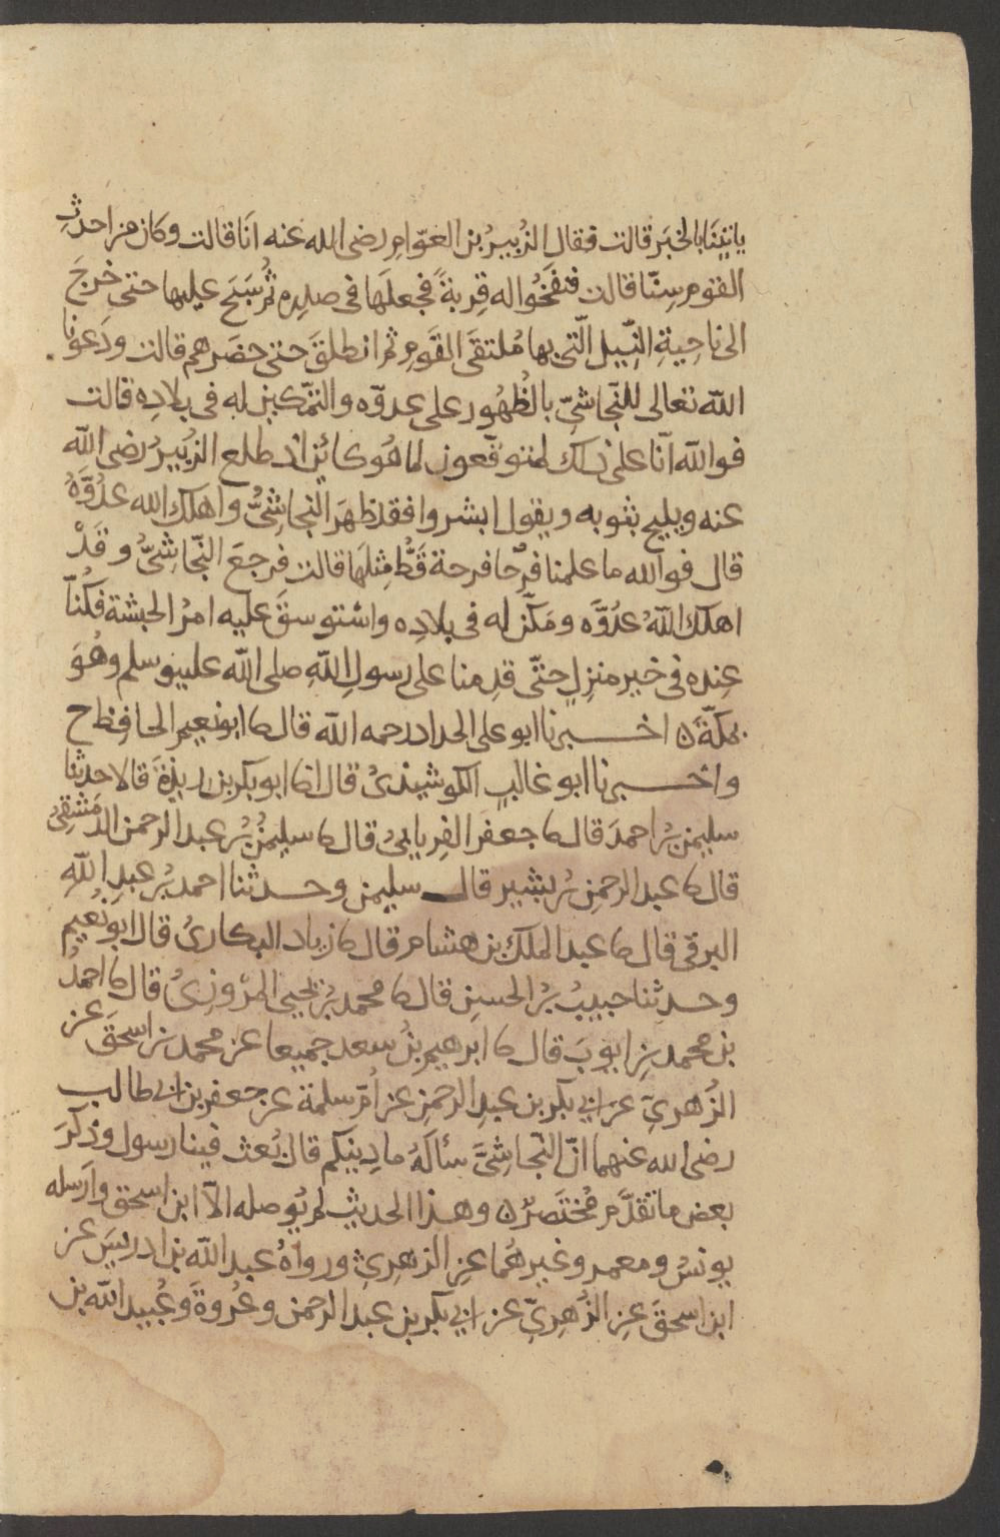 ياتينَا بالخبَر قالت فقال الزُبيرُ بن العَوّامِ رضى الله عنه انَا قالت وكان من احدثِ
القومِ سِنّا قالت فنفَخُوا له قِربةً فجعلَها فى صدرِه ثُمّ سَبَحَ عليها حتى خرجَ
الى ناحِيةِ النِّيلِ الّتى بها مُلتقَى القَومِ ثم انطلقَ حتى حضَرهم قالت ودَعونا
اللّه تعالى للنّجاشىّ بالظهُورِ على عدوّه والتمّكين له فى بلادِه قالت
فوالله انّا على ذلك لمتوقّعون لما هُو كائن اذ طلع الزُبيرُ رضى اللّه
عنه ويليح بثوبه ويقول ابشروا فقد ظهَرَ النجاشِىُّ واهلك الله عدُوَّهُ
قال فوالله ما علمنا فرِحًا فرحة قَطُّ مِثلَها قالت فرجعَ النّجاشِىُّ وقَدْ
اهلك اللّهُ عدُوَّه ومَكّن له فى بلادِه واسْتوسقَ عليه امرُ الحبشة فكُنّا
عِنده فى خير منزِلٍ حتّى قدِمنا على رسولِ اللّهِ صلى اللّه عليه وسلم وهُوَ
بمكّةَ ن اخــبرنا ابو على الحداد رحمه اللّه قال نا ابو نعيم الحافِظ ح
واخــبرنا ابو غالبٍ الكوشيذىُ قال انا ابو بكر بن ريذةَ قالا حدثنا
سليمن بنُ احمدَ قال نا جعفر الفِريابىُ قال نا سليمنُ بنُ عبد الرحمن الدمشقىُ
قال نا عبد الرحمنِ بنُ بشير قال سليمن وحــدثنا احمد بنُ عبدِ اللّهِ
البرقى قال نا عبد الملك بن هشام قال نا زياد البكارىُ قال ابو نُعيم
وحــدثنا حبيبُ بنُ الحسين قال نا محمد بنُ يحيى المرْوزِىُ قال نا احمدُ
بن محمد بنِ ايوبَ قال نا ابرهيم بنُ سعد جميعا عن محمد بن اسحقَ عن
الزُهرىِّ عن ابي بكر بن عبدِ الرحمنِ عن اُمّ سلمة عن جعفر بن ابي طالب
رضى الله عنهما انّ النّجاشِىَّ سألَهُ ما دِينكم قال بُعث فينا رسول وذكرَ
بعض ما تقدَّم مُختَصَرٌ ن وهذا الحديث لم يُوصله الّا ابن اسحق وارسله
يونسُ ومعمر وغيرهُما عنِ الزهرىّ ورواهُ عبد اللّه بن ادريسَ عن
ابن اسحقَ عنِ الزُهرِىِّ عن ابي بكر بن عبد الرحمن وعُروةَ وعُبيد اللّه بن